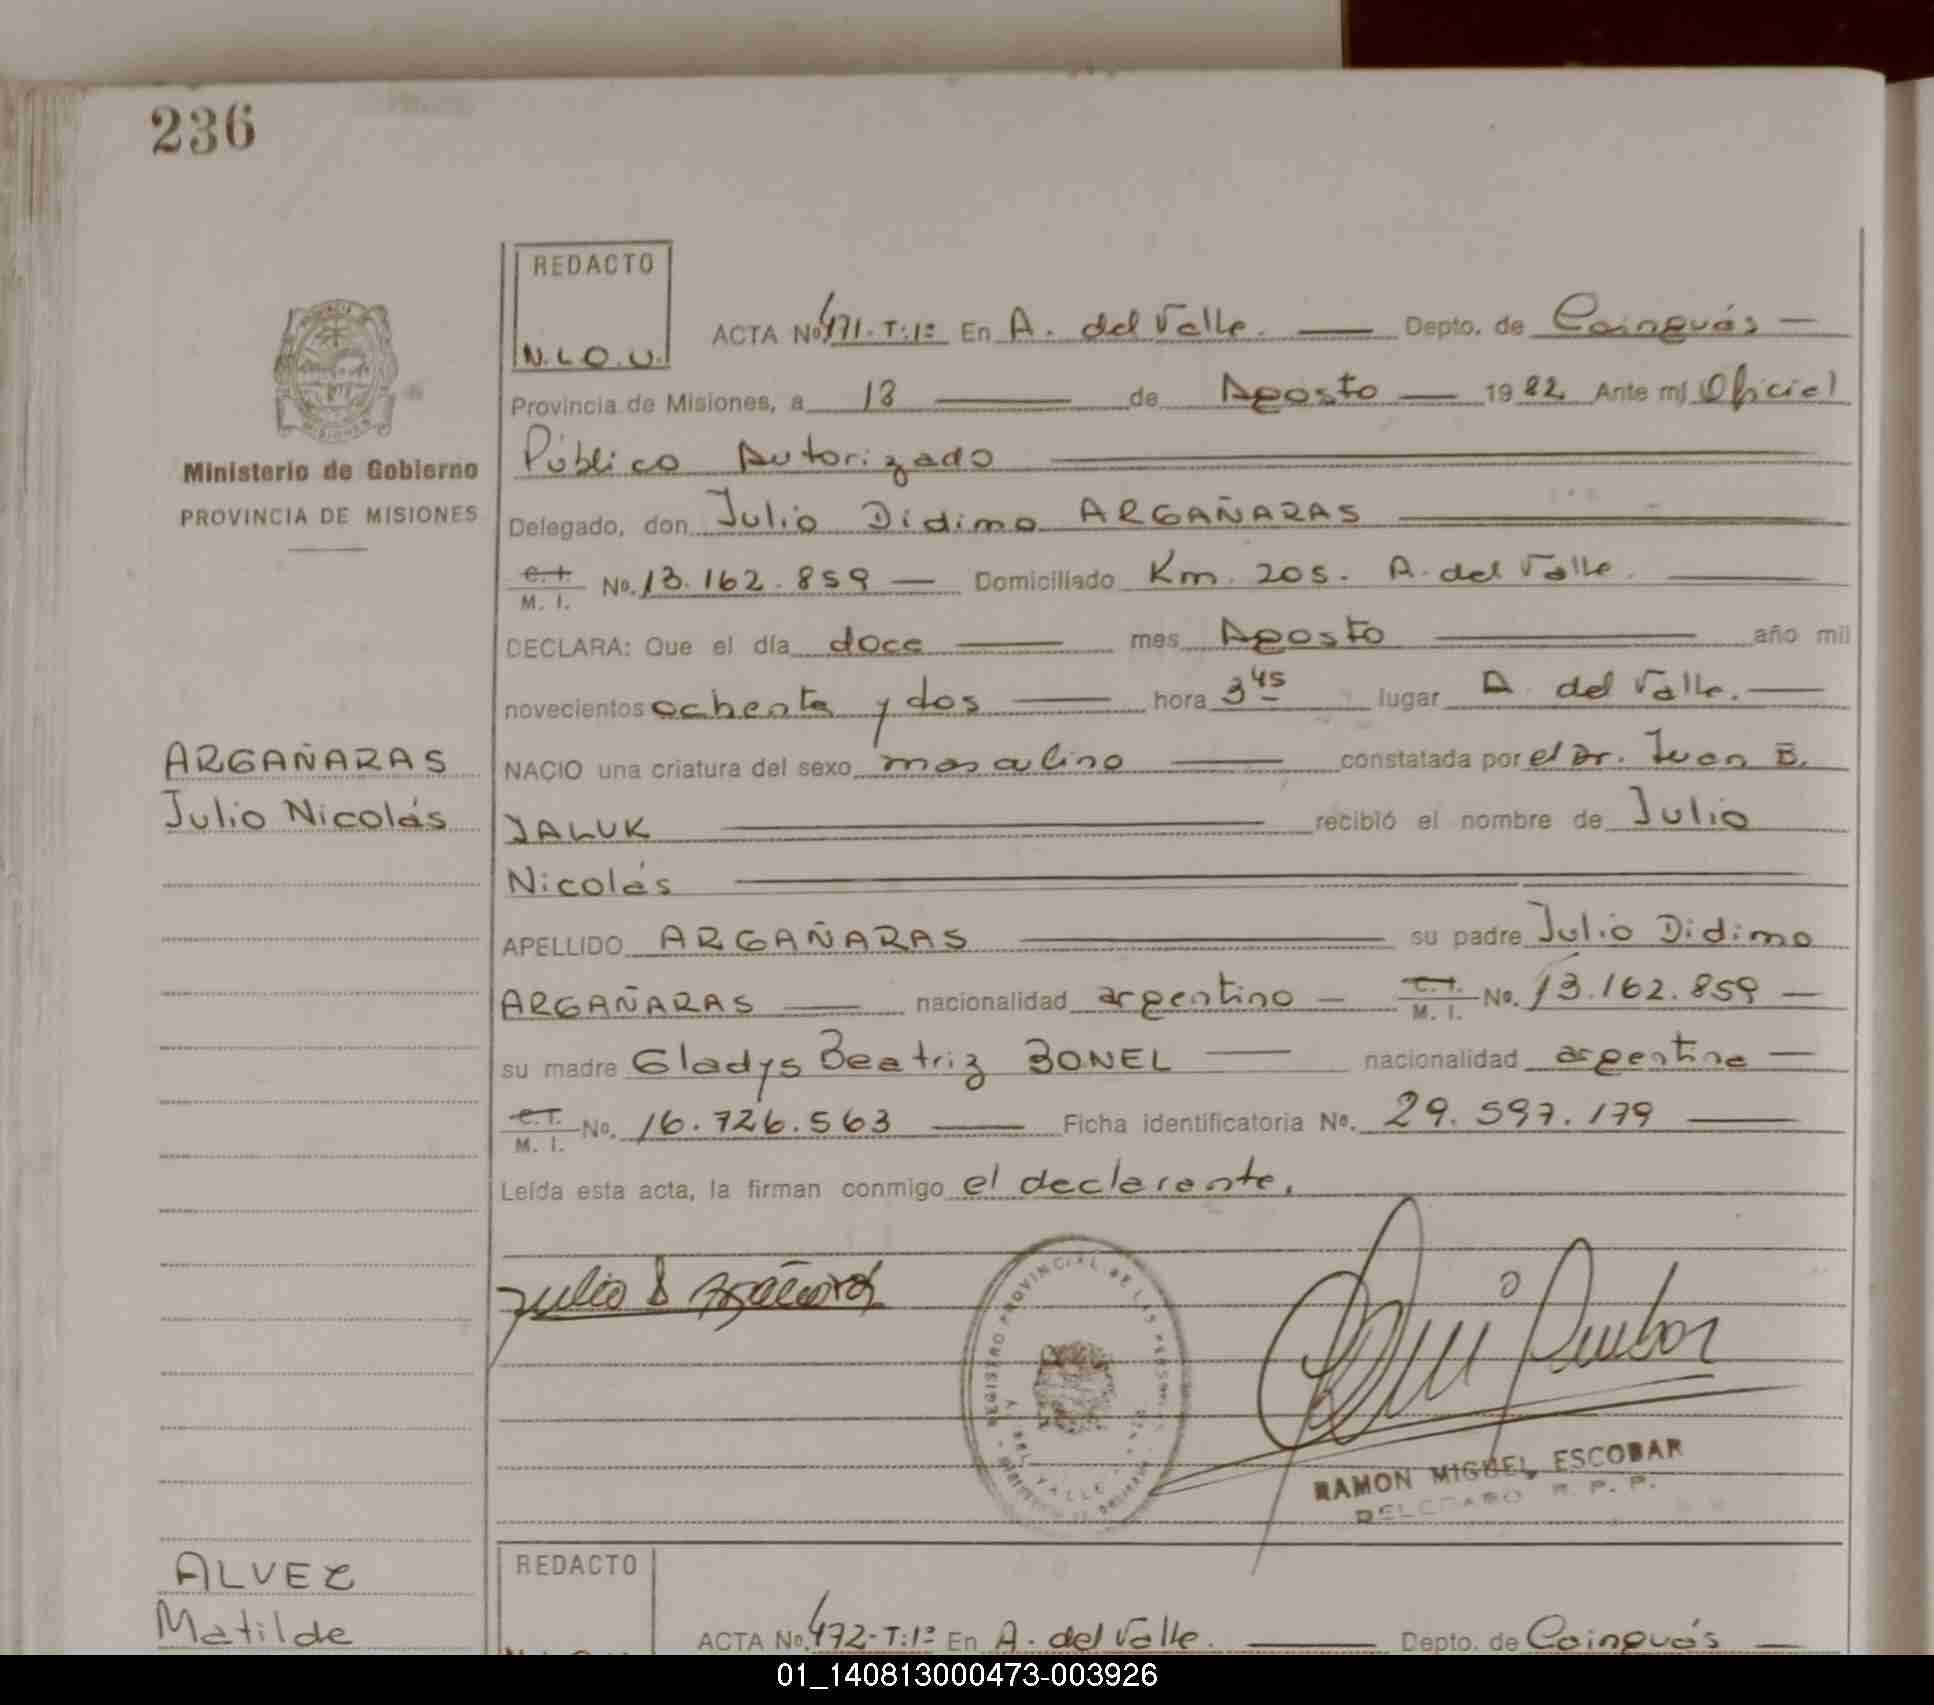 236
REDACTO
N.L.O.U.
ACTA No. 471-T:1º En A. del Valle. Depto. de Cainguás
Provincia de Misiones, a 13 de Agosto 1982 Ante mí Oficial
Público Autorizado
Ministerio de Gobierno
PROVINCIA DE MISIONES
Delegado, don Julio Didimo ARGAÑARAS
C.I. M. I. No. 13.162.859 Domiciliado Km. 205. A. del Valle.
DECLARA: Que el día doce mes Agosto año mil
novecientos ochenta y dos hora 3 45 lugar A. del Valle.
ARGAÑARAS
Julio Nicolás
NACIO una criatura del sexo masculino constatada por el Dr. Juan B.
JALUK recibió el nombre de Julio
Nicolás
APELLIDO ARGAÑARAS su padre Julio Didimo
ARGAÑARAS nacionalidad argentino C.I. M. I. No. 13.162.859
su madre Gladys Beatriz BONEL nacionalidad argentina
C.I. M. I. No. 16.726.563 Ficha identificatoria No. 29.597.179
Leída esta acta, la firman conmigo el declarante.
Julio D Argañaras
REGISTRO PROVINCIAL DE LAS PERSONAS
A. DEL VALLE
RAMON MIGUEL ESCOBAR
DELEGADO R. P. P.
ALVEZ
Matilde
REDACTO
ACTA No. 472-T:1º En A. del Valle. Depto. de Cainguás
01_140813000473-003926